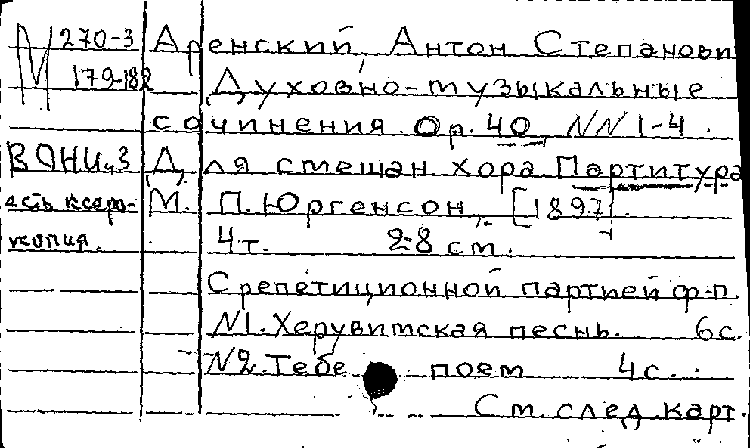 М 270-3 Аренский, Антон Степанови
179-182 Духовно-музыкальные
сочинения Ор. 40 NN 1-4.
В ОНИ, 3 Для смешан хора Партитура
есть ксеро- М. П. Юргенсон, [1897].
копия. 4 т. 28 см.
С репетиционной партией ф-п.
N1. Херувимская песнь. 6 с.
N2. Тебе поем 4 с.
См. след. карт.